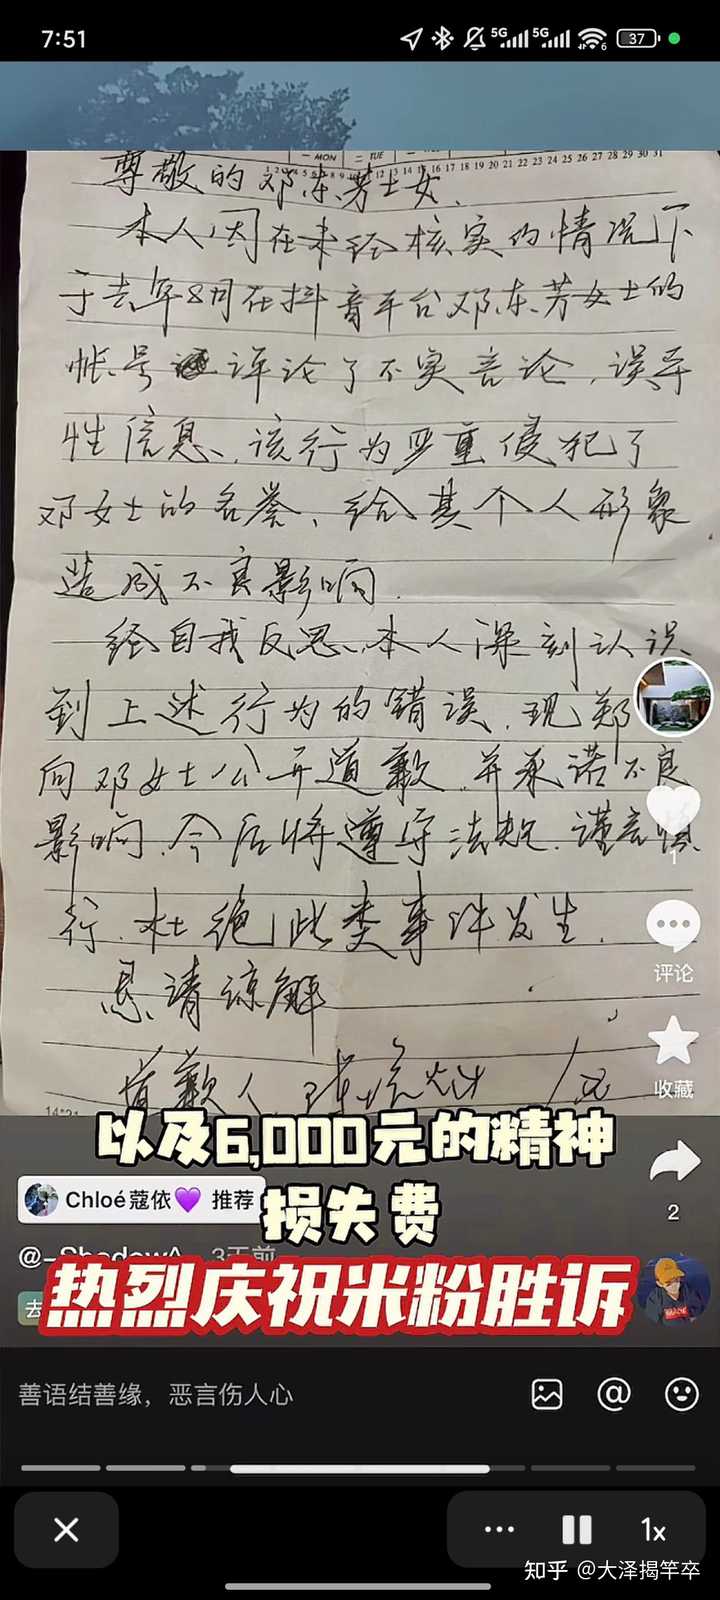 7:51
5G
5G
6
37
一 MON
二 TUE
12 13 14 15 16 17 18 19 20 21 22 23 24 25 26 27 28 29 30 31
尊敬的邓东芳士女、
本人因在未经核实的情况下
于去年8月在抖音平台邓东芳女士的
帐号评论了不实言论，误导
性信息、该行为严重侵犯了
邓女士的名誉、给其个人形象
造成不良影响.
经自我反思、本人深刻认识
到上述行为的错误，现郑
向邓女士公开道歉、并承诺不良
影响，今后将遵守法规、谨言慎
行、杜绝此类事件发生.
恳请谅解
道歉人
以及6,000元的精神
损失费
热烈庆祝米粉胜诉
1
评论
收藏
2
Chloé蔻依💜 推荐
@-ShadowA
3天前
去
善语结善缘，恶言伤人心
1x
知乎 @大泽揭竿卒